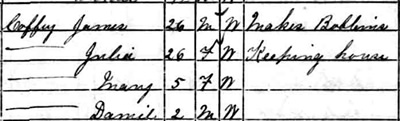 Coffey James 26 M W Makes Bobbins
—— Julia 26 F W Keeping house
—— Mary 5 F W
—— Daniel 2 M W